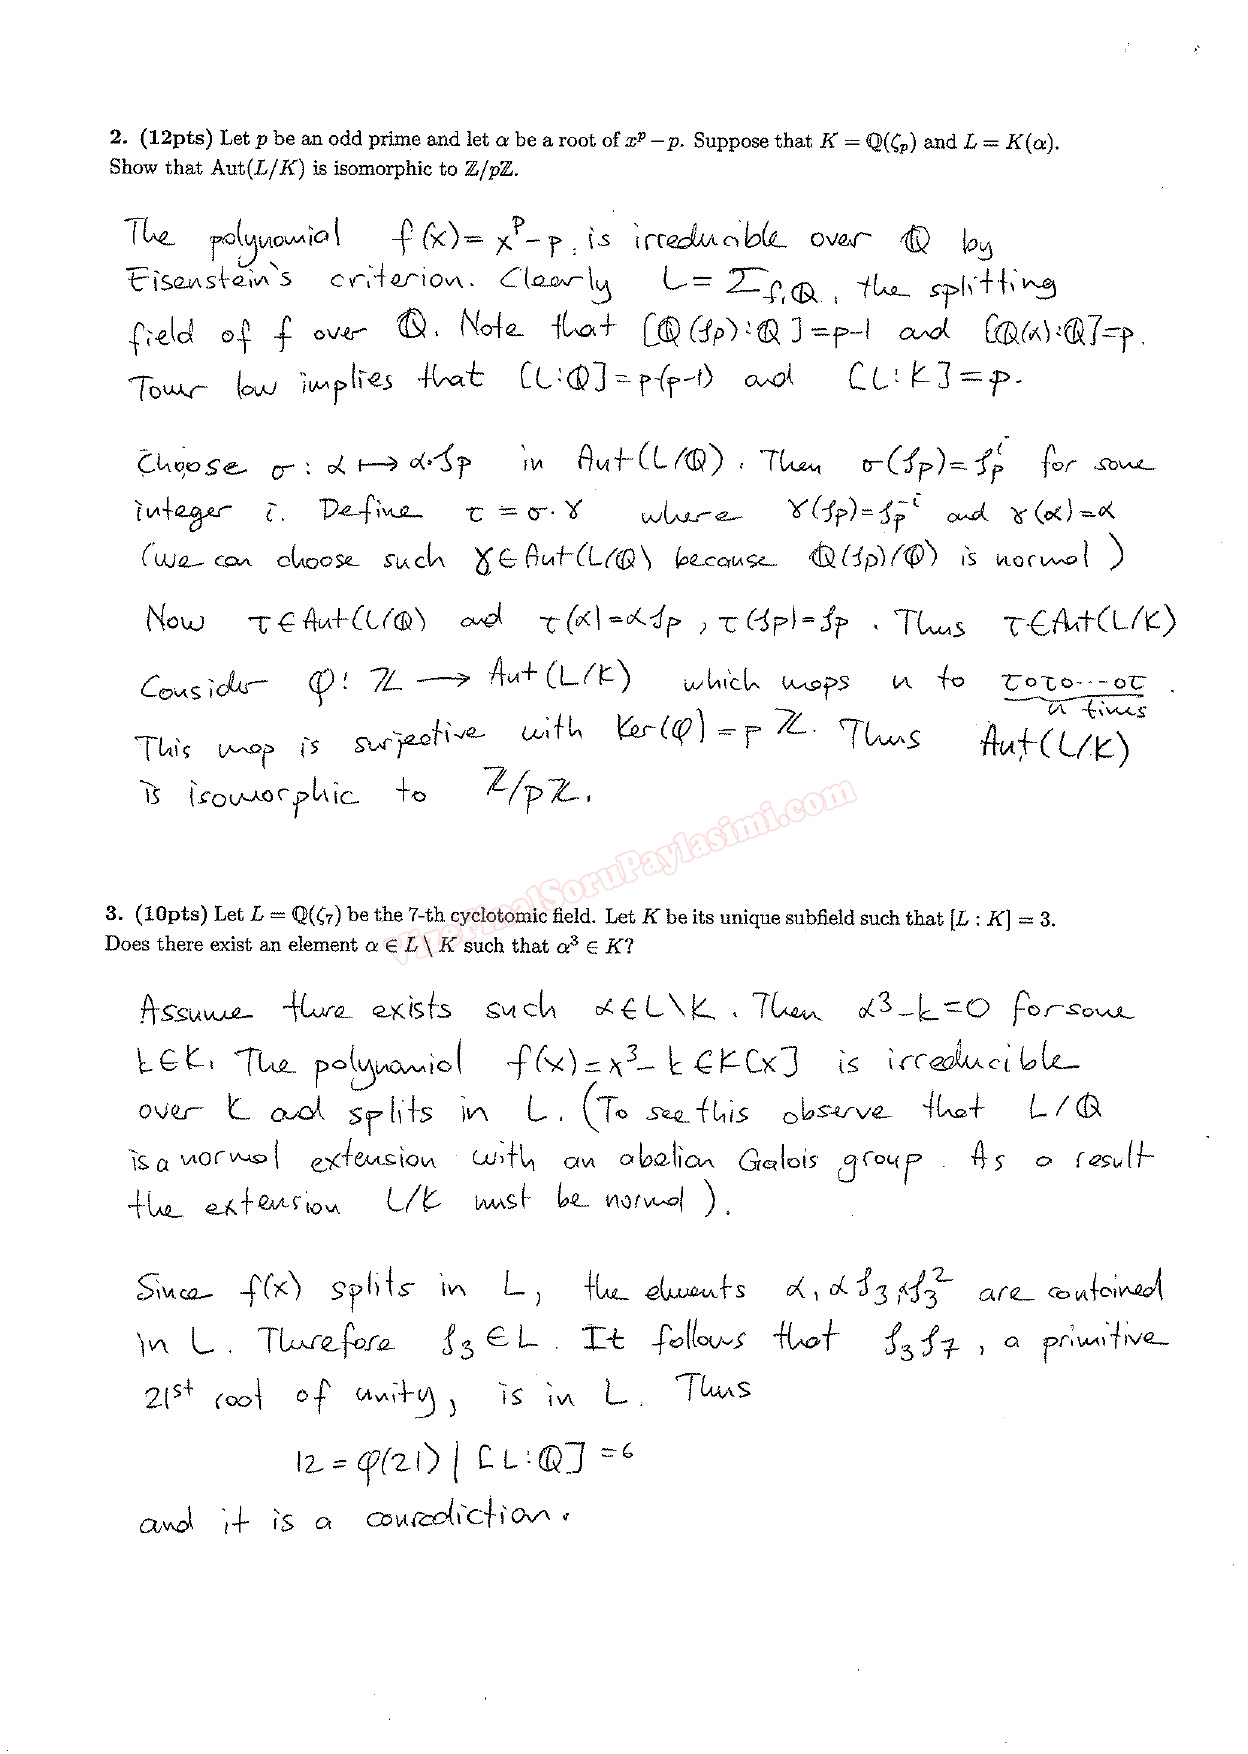 2. (12pts) Let p be an odd prime and let α be a root of x^p − p. Suppose that K = ℚ(ζ_p) and L = K(α).
Show that Aut(L/K) is isomorphic to ℤ/pℤ.
The polynomial f(x) = x^p − p, is irreducible over ℚ by
Eisenstein's criterion. Clearly L = Σ_{f,ℚ}, the splitting
field of f over ℚ. Note that [ℚ(ζp):ℚ] = p−1 and [ℚ(α):ℚ] = p.
Tower law implies that [L:ℚ] = p(p−1) and [L:K] = p.
Choose σ : α ↦ α·ζp in Aut(L/ℚ). Then σ(ζp) = ζp^i for some
integer i. Define τ = σ·γ where γ(ζp) = ζp^{-i} and γ(α) = α
(we can choose such γ ∈ Aut(L/ℚ) because ℚ(ζp)/ℚ) is normal)
Now τ ∈ Aut(L/ℚ) and τ(α) = αζp, τ(ζp) = ζp. Thus τ ∈ Aut(L/K)
Consider φ : ℤ → Aut(L/K) which maps n to τoτo---oτ.
n times
This map is surjective with Ker(φ) = pℤ. Thus Aut(L/K)
is isomorphic to ℤ/pℤ.
VizeFinalSoruPaylasimi.com
3. (10pts) Let L = ℚ(ζ₇) be the 7-th cyclotomic field. Let K be its unique subfield such that [L : K] = 3.
Does there exist an element α ∈ L \ K such that α³ ∈ K?
Assume there exists such α ∈ L\K. Then α³ − k = 0 for some
k ∈ K. The polynomial f(x) = x³ − k ∈ K[x] is irreducible
over K and splits in L. (To see this observe that L/ℚ
is a normal extension with an abelian Galois group. As a result
the extension L/K must be normal).
Since f(x) splits in L, the elements α, αζ₃, αζ₃² are contained
in L. Therefore ζ₃ ∈ L. It follows that ζ₃ζ₇, a primitive
21st root of unity, is in L. Thus
12 = φ(21) | [L:ℚ] = 6
and it is a contradiction.